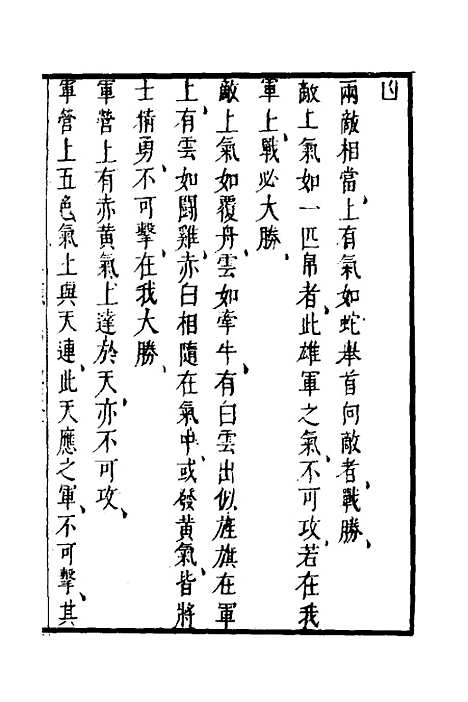 兩敵相當、上有氣如蛇舉首向敵者、戰勝、
敵上氣如一匹帛者、此雄軍之氣、不可攻、若在我
軍上、戰必大勝、
敵上氣如覆舟、雲如牽牛、有白雲出似旌旗、在軍
上、有雲如鬪雞、赤白相隨在氣中、或發黃氣、皆將
士精勇、不可擊、在我大勝、
軍營上有赤黃氣、上達於天、亦不可攻、
軍營上五色氣、上與天連、此天應之軍、不可擊、其